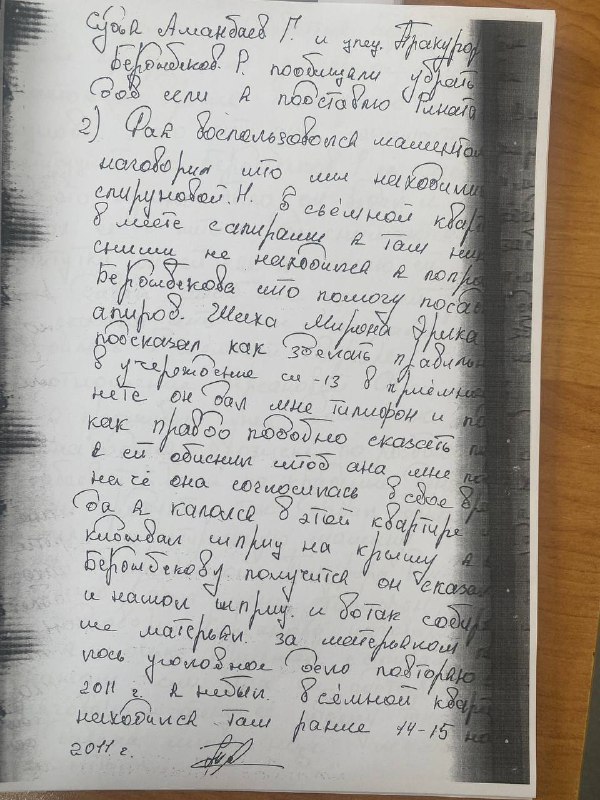 Судья Аманбаев Г. и упец. Пракурор
Берошбеков. Р. пообищали убрать
дов если я подставлю Рината
2) Рак воспользовался маментом
наговорил што мы находили
спируновой. Н. в съёмной кварт
в месте сапирами я там ни
сними не находился я попро
Берошбекова што помогу посад
апиров. Шиха Мирона Эрика
подсказал как зделать правильн
в учереждение си-13 в приёмна
нете он дал мне тилифон и по
как правдо подобно сказать
я ей обиснил штоб ана мне по
на че она согласилась в свое вре
да я калался в этой квартире
кидывал шприц на крышу я
Берошбекову получится он сказал
и нашол шприц. и вотак собир
ше матерьял. за матерьялом
лось уголовное дело повторяю
2011 г. я небыл в сёмной кварт
находился там ранше 14-15 но
2011 г.